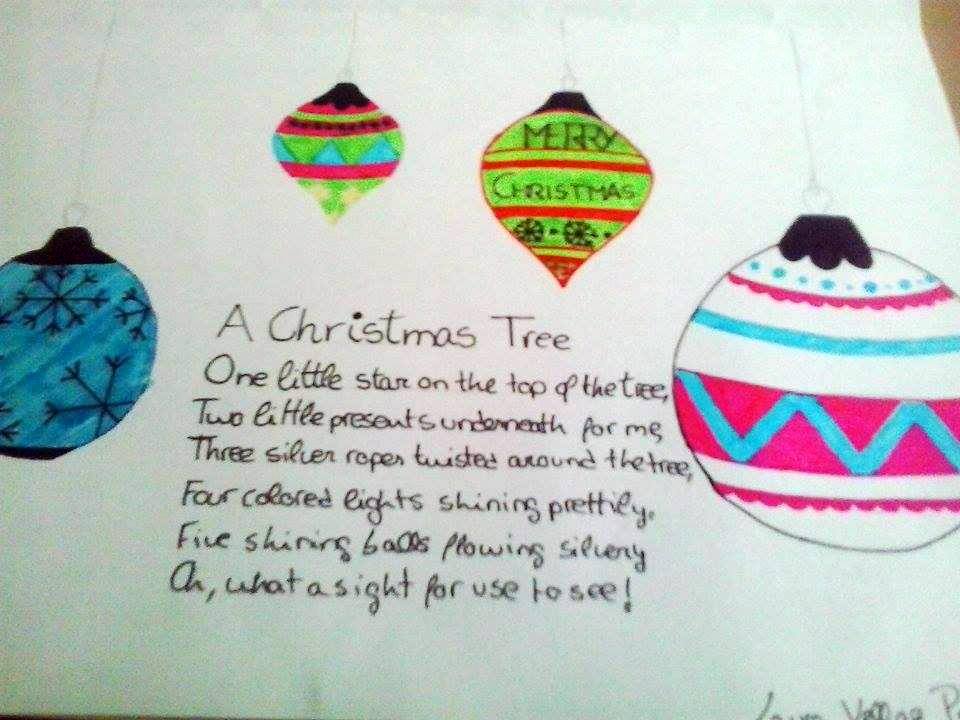 MERRY
CHRISTMAS
A Christmas Tree
One little star on the top of the tree,
Two little presents underneath for me,
Three silver ropes twisted around the tree,
Four colored lights shining prettily.
Five shining balls flowing silvery
Oh, what a sight for use to see!
Laura